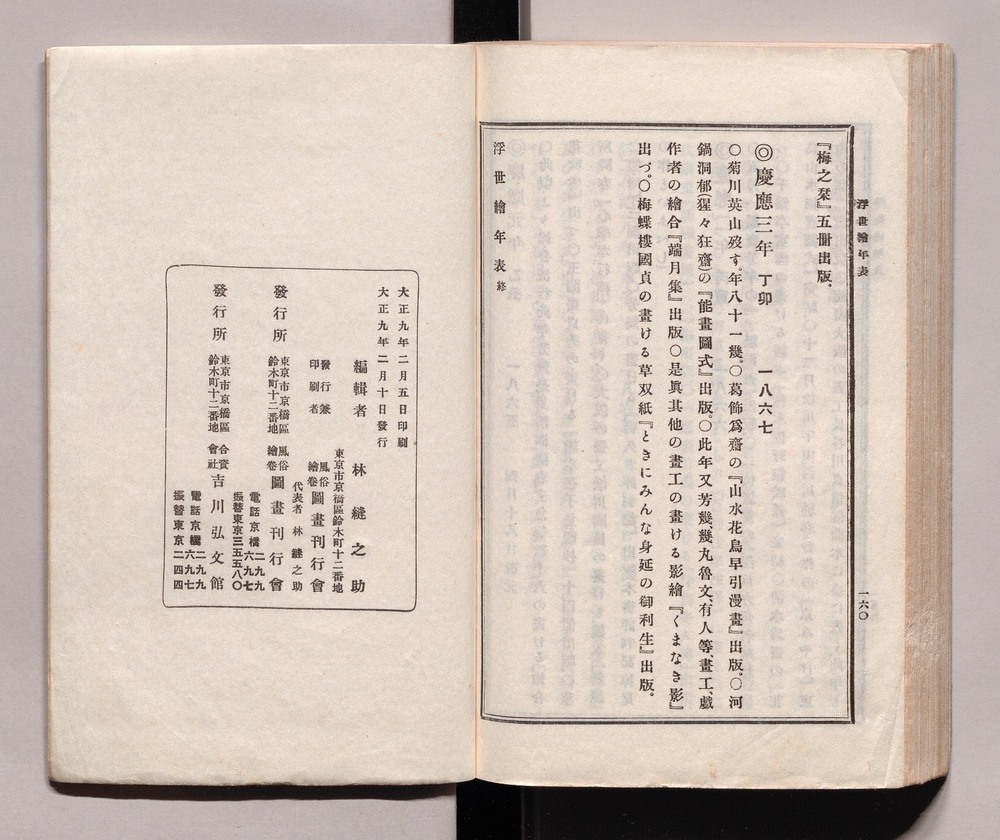 浮世繪年表
一六〇
『梅之栞』五冊出版。
◎慶應三年 丁卯 一八六七
〇菊川英山歿す。年八十一幾。〇葛飾爲齋の『山水花鳥早引漫畫』出版。〇河
鍋洞郁(猩々狂齋)の『能畫圖式』出版。〇此年又芳幾、幾丸魯文、有人等、畫工、戲
作者の繪合『端月集』出版〇是眞其他の畫工の畫ける影繪『くまなき影』
出づ。〇梅蝶樓國貞の畫ける草双紙『ときにみんな身延の御利生』出版。
浮世繪年表終
大正九年二月五日印刷
大正九年二月十日發行
編輯者 林縫之助
東京市京橋區鈴木町十二番地
發行兼印刷者 風俗繪卷圖畫刊行會
代表者 林縫之助
發行所 東京市京橋區鈴木町十二番地 風俗繪卷圖畫刊行會
電話京橋 二九九九 六七
振替東京三五五八〇
發行所 東京市京橋區鈴木町十二番地 合資會社吉川弘文館
電話京橋 二九九九 六七
振替東京二四四